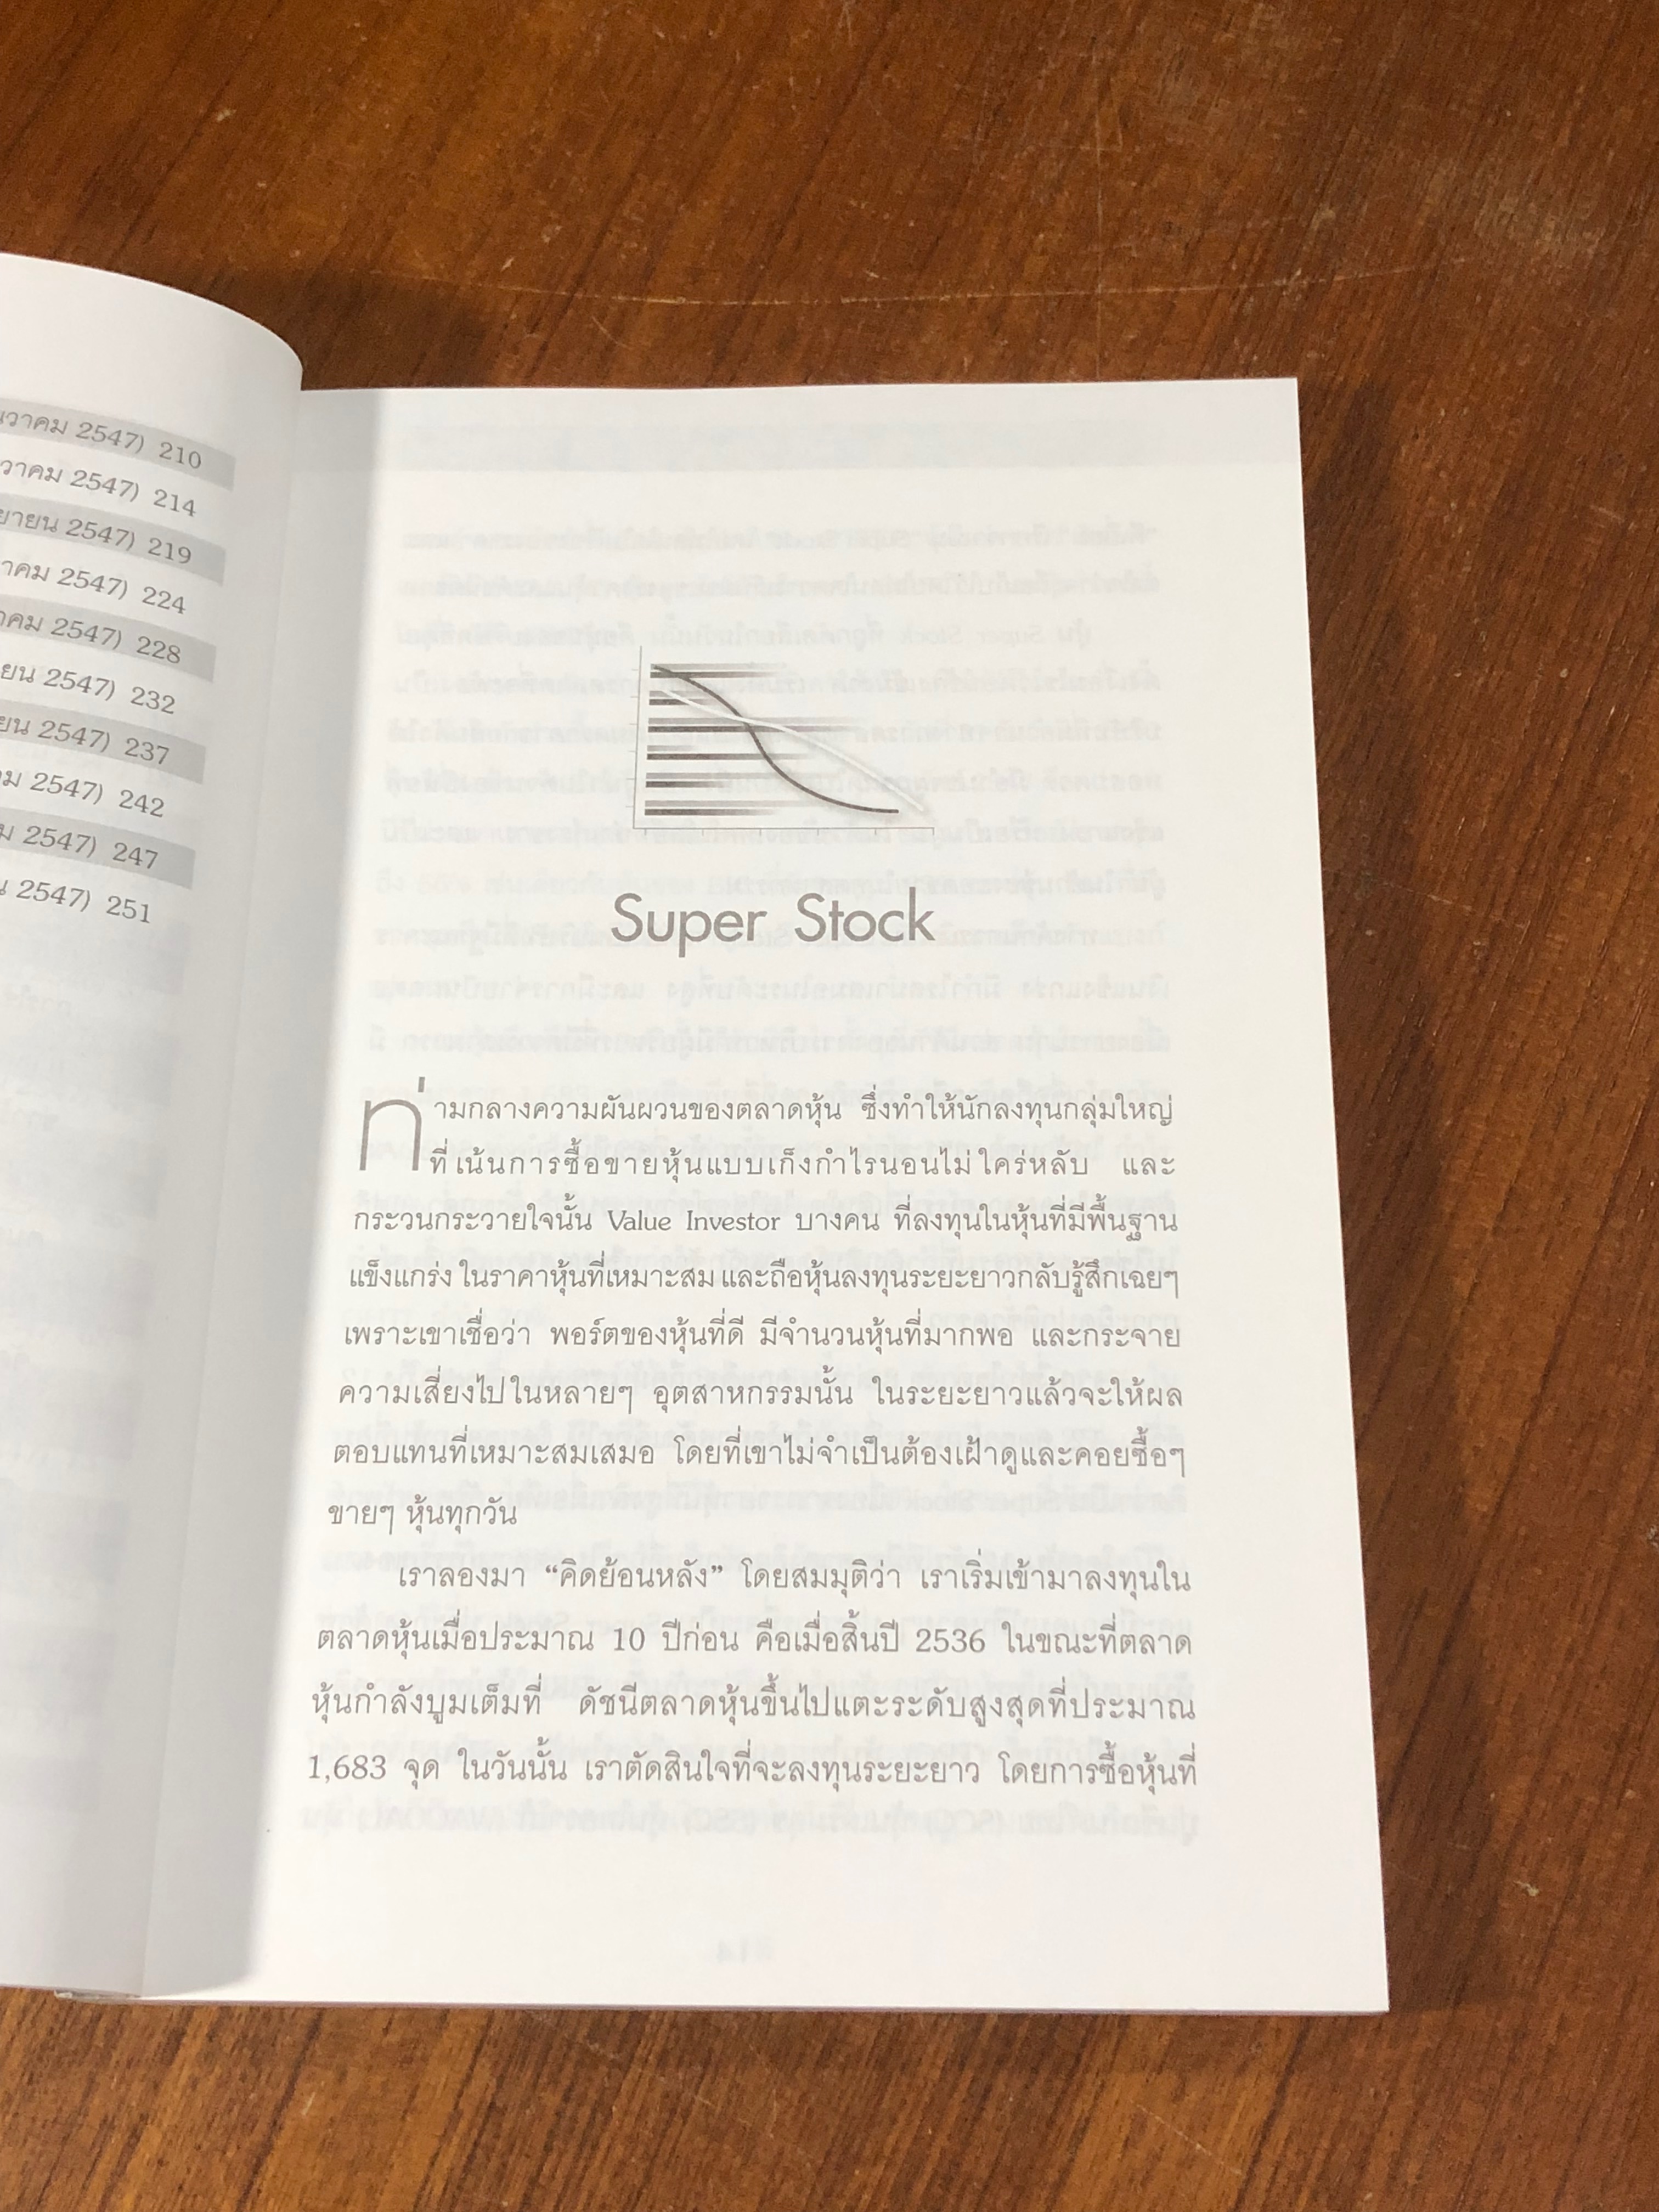 2547) 210
2547) 214
2547) 219
2547) 224
2547) 228
2547) 232
2547) 237
2547) 242
2547) 247
2547) 251
Super Stock
ท่ามกลางความผันผวนของตลาดหุ้น ซึ่งทำให้นักลงทุนกลุ่มใหญ่
ที่เน้นการซื้อขายหุ้นแบบเก็งกำไรนอนไม่ใคร่หลับ และ
กระวนกระวายใจนั้น Value Investor บางคน ที่ลงทุนในหุ้นที่มีพื้นฐาน
แข็งแกร่ง ในราคาหุ้นที่เหมาะสม และถือหุ้นลงทุนระยะยาวกลับรู้สึกเฉยๆ
เพราะเขาเชื่อว่า พอร์ตของหุ้นที่ดี มีจำนวนหุ้นที่มากพอ และกระจาย
ความเสี่ยงไปในหลายๆ อุตสาหกรรมนั้น ในระยะยาวแล้วจะให้ผล
ตอบแทนที่เหมาะสมเสมอ โดยที่เขาไม่จำเป็นต้องเฝ้าดูและคอยซื้อๆ
ขายๆ หุ้นทุกวัน
เราลองมา “คิดย้อนหลัง” โดยสมมุติว่า เราเริ่มเข้ามาลงทุนใน
ตลาดหุ้นเมื่อประมาณ 10 ปีก่อน คือเมื่อสิ้นปี 2536 ในขณะที่ตลาด
หุ้นกำลังบูมเต็มที่ ดัชนีตลาดหุ้นขึ้นไปแตะระดับสูงสุดที่ประมาณ
1,683 จุด ในวันนั้น เราตัดสินใจที่จะลงทุนระยะยาว โดยการซื้อหุ้นที่